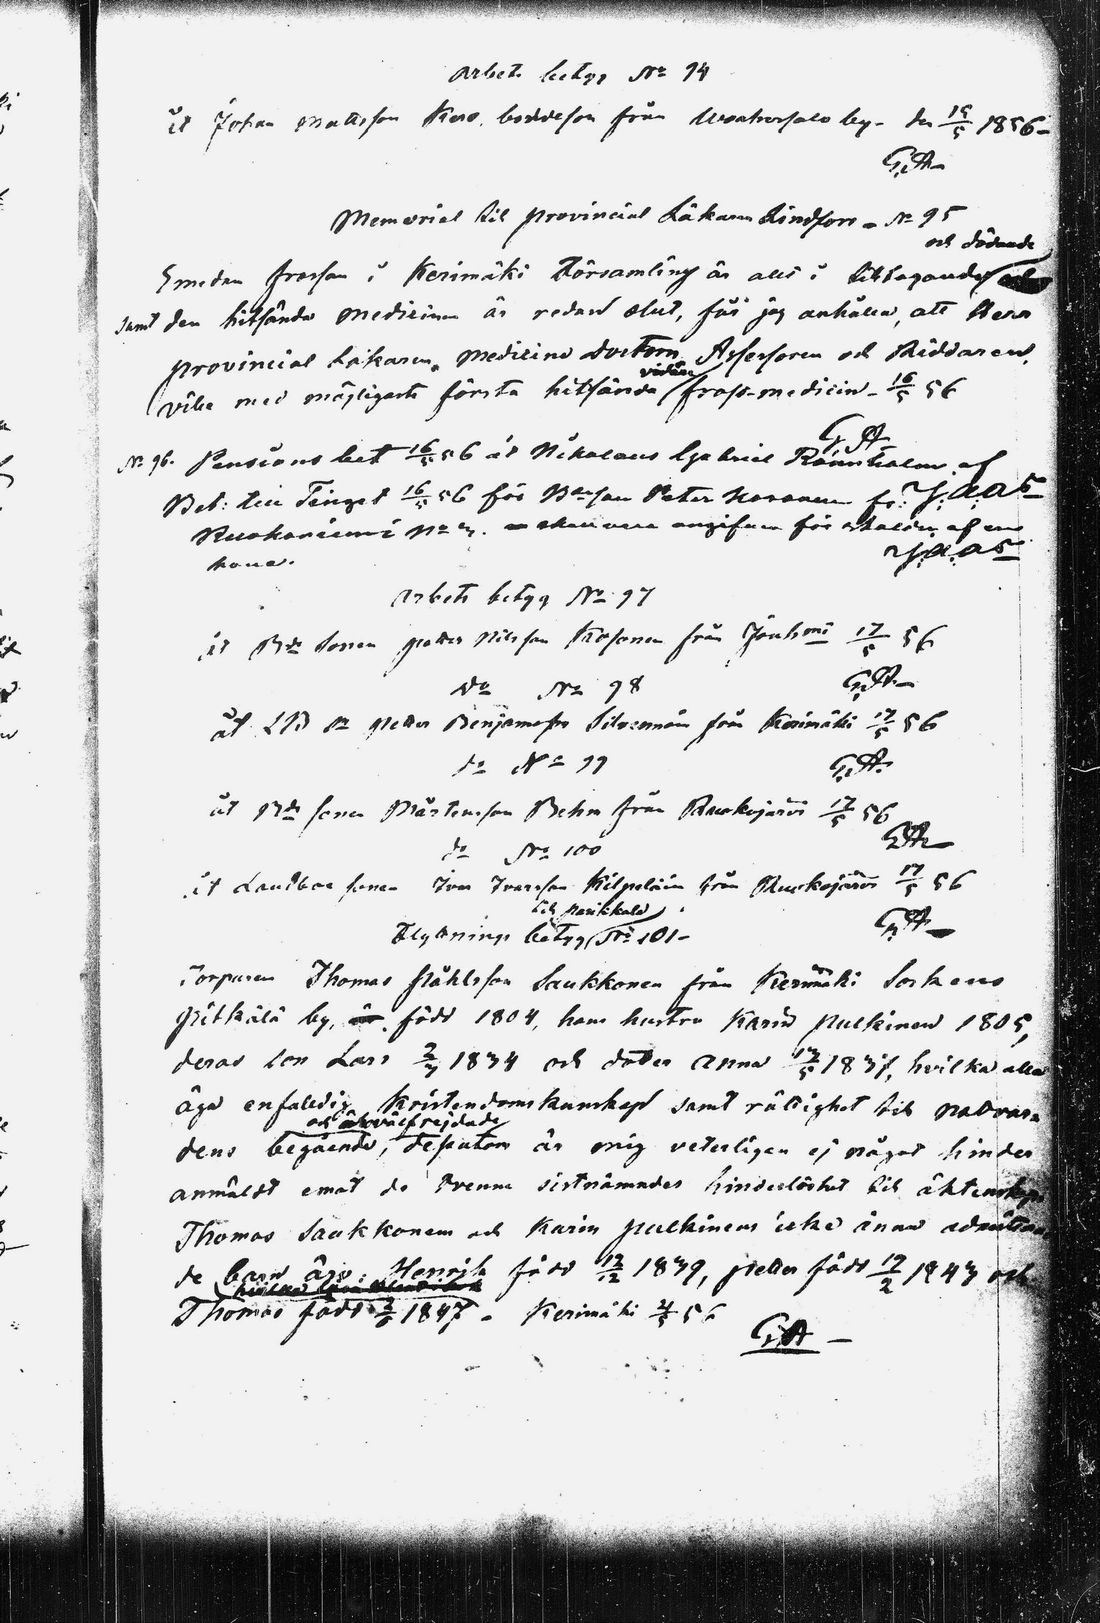 Arbets betyg No 94
åt Johan Mattsson från by - den 15/5 1856 -
G. A.
Memorial till provincial Läkaren Lindfors - No 95
och dödande
Emedan frossan i Kerimäki Församling är allt i tilltagande
samt den hitsända medicinen är redan slut, får jag anhålla, att Herr
provincial Läkaren, Medicine doctorn, Assessoren och Riddaren,
vidare
ville med möjligaste första hitsända frass-medicin - 16/5 56
G. A.
No 96. Pensions bet 16/5 56 åt Nikolaus Gabriel af
Bet: till Tinget 16/5 56 för Peter
No för af en
kona.
Arbets betyg No 97
åt Bde Sonen Petter Nilsson Kosonen från 17/5 56
Do No 98 G. A.
åt LB Petter Silvennoin från Kerimäki 17/5 56
do No 99 G. A.
åt Bde sonen Mårtensson Behm från Ruokojärvi 17/5 56
G. A.
do No 100
åt Landboe sonen Ivar Ivarsson Kilpeläin från Ruokojärvi 17/5 56
till Parikkala
Flyttnings betyg No 101 - G. A.
Torparen Thomas Påhlsson Saukkonen från Kerimäki Sockens
Pitkälä by, född 1804, hans hustru Karin Pulkinen 1805,
deras son Lars 1834 och doter Anna 1837, hvilka alla
äga enfaldig Kristendoms kunskap samt rättighet till nattvar-
och äro väl frejdade
dens begående, är mig veterligen ej något hinder
anmäldt emot de tvenne sistnämndes hinderlöshet till äktenskap
Thomas Saukkonen och Karin Pulkinens icke ännu admitera-
de barn äro: Henrik född 12/12 1839, Petter född 17/2 1843 och
Thomas född 1847 - Kerimäki 56
G. A -